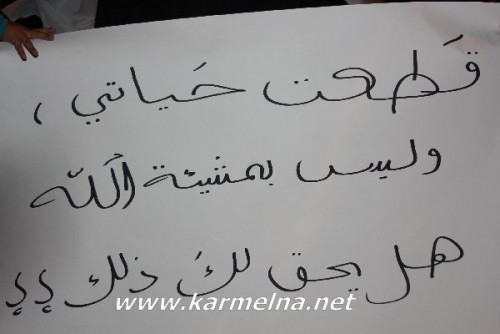 قَطعت حَياتي ،
وليس بمشيئة اللّه
هل يحق لكَ ذلك ؟؟
www.karmelna.net